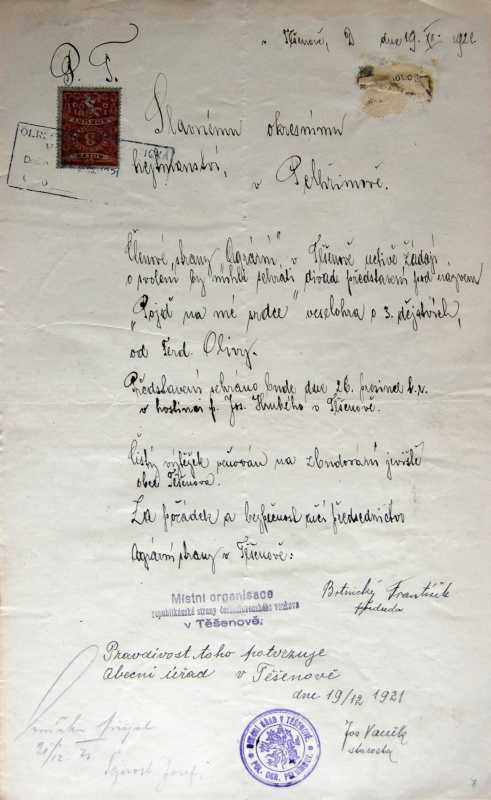 v Těšenově, D dne 19. XII. 1921
P. T.
Slavnému okresnímu
hejtmanství,
v Pelhřimově.
Členové strany „Agrární" v Těšenově uctivě žádají
o svolení by mohli sehráti divad. představení pod názvem
„Pojď na mé srdce" veselohra o 3. dějstvích,
od Ferd. Olivy.
Představení sehráno bude dne 26. prosince t. r.
v hostinci p. Jos. Hrubého v Těšenově.
Čistý výtěžek věnován na zbudování jeviště
obce Těšenova.
Za pořádek a bezpečnost ručí předsednictvo
Agrární strany v Těšenově:
Místní organisace
republikánské strany československého venkova
v Těšenově.
Brtnický František
předseda
Pravdivost toho potvrzuje
Obecní úřad v Těšenově
dne 19/12 1921
OBECNÍ ÚŘAD V TĚŠENOVĚ
POL. OKR. PELHŘIMOV.
Jos Vaněk
starosta
20/12 21
Josef
7